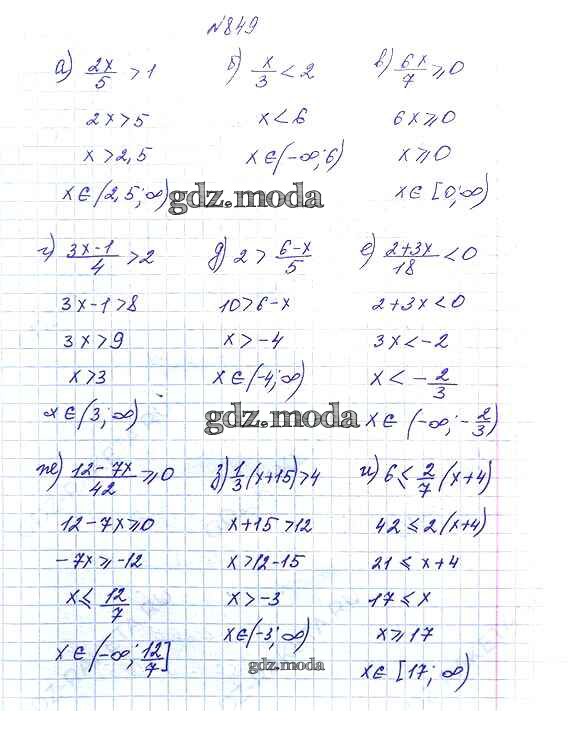 №849
а) 2x/5 > 1
2x > 5
x > 2,5
x ∈ (2,5; ∞)
б) x/3 < 2
x < 6
x ∈ (-∞; 6)
в) 6x/7 ≥ 0
6x ≥ 0
x ≥ 0
x ∈ [0; ∞)
gdz.moda
г) 3x-1/4 > 2
3x-1 > 8
3x > 9
x > 3
x ∈ (3; ∞)
д) 2 > 6-x/5
10 > 6-x
x > -4
x ∈ (-4; ∞)
е) 2+3x/18 < 0
2+3x < 0
3x < -2
x < -2/3
x ∈ (-∞; -2/3)
gdz.moda
ж) 12-7x/42 ≥ 0
12-7x ≥ 0
-7x ≥ -12
x ≤ 12/7
x ∈ (-∞; 12/7]
з) 1/3 (x+15) > 4
x+15 > 12
x > 12-15
x > -3
x ∈ (-3; ∞)
и) 6 ≤ 2/7 (x+4)
42 ≤ 2(x+4)
21 ≤ x+4
17 ≤ x
x ≥ 17
x ∈ [17; ∞)
gdz.moda